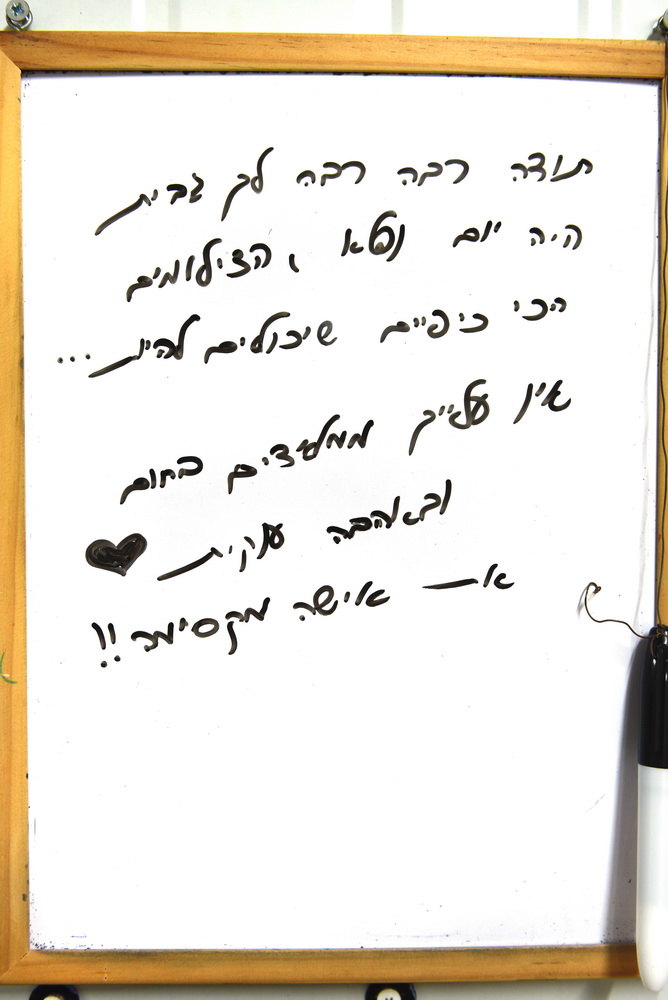 תודה רבה רבה לך גבית
היה יום נפלא, הצילומים
הכי כיפיים שיכולים להיות...
אין עלייך ממליצים בחום
ובאהבה ענקית ♥
את אישה מקסימה!!